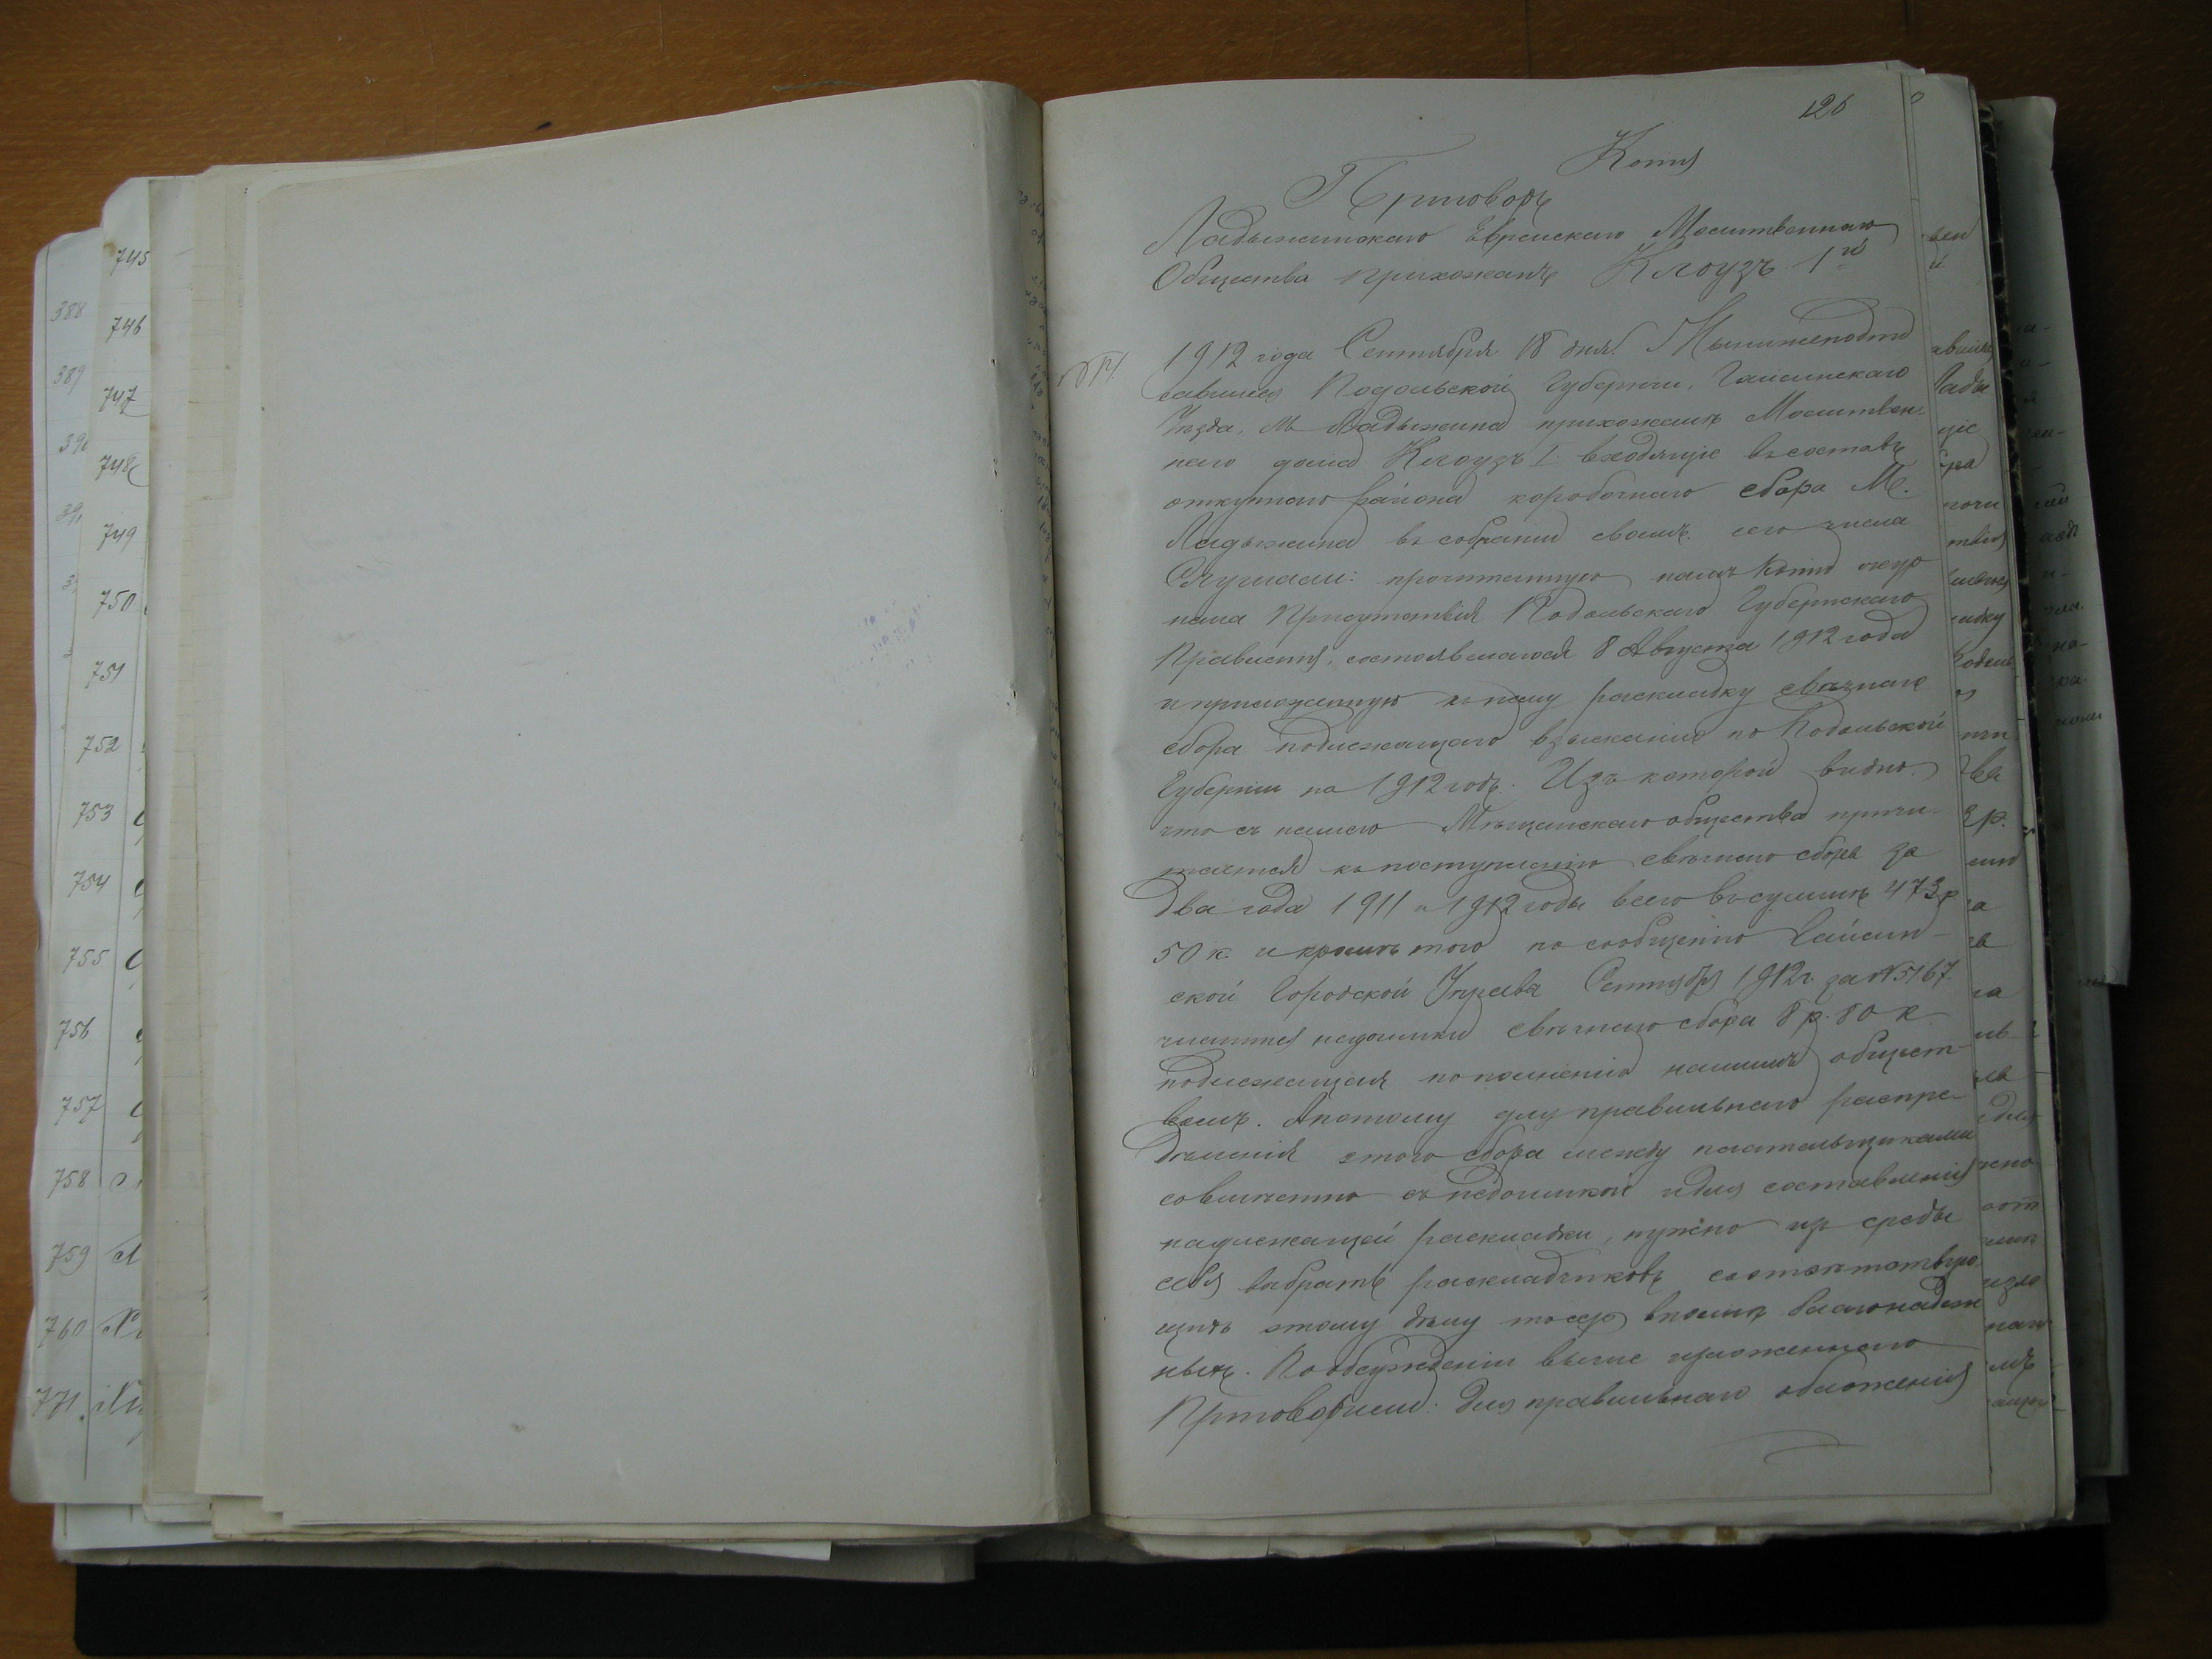 745
388
746
389
747
748
749
750
751
752
753
754
755
756
757
758
759
760
771
126
Копия
Приговоръ
Ладыжинскаго Еврейскаго Молитвеннаго
Общества прихожанъ Клоузъ 1й
1912 года Сентября 18 дня. Мы нижеподпи
савшиеся Подольской Губернии, Гайсинскаго
Уѣзда, М. Ладыжина прихожане Молитвен-
наго дома Клоузъ I входящие въ составъ
откупнаго района коробочнаго сбора М.
Ладыжина въ собрании своемъ сего числа
Слушали: прочитанную намъ копию жур 
нала Присутствия Подольскаго Губернскаго
Правления, состоявшагося 8 Августа 1912 года
и приложенную къ нему раскладку свѣчнаго
сбора подлежащаго взысканию по Подольской
Губернии на 1912 годъ. Изъ которой видно,
что съ нашего Мѣщанскаго общества причи-
тается къ поступлению свѣчнаго сбора за
два года 1911 и 1912 годы всего въ суммѣ 473 р
50 к. и кромѣ того по сообщению Гайсин-
ской Городской Управы Сентября 1912 г. за № 5167
числится недоимки свѣчнаго сбора 8 р. 80 к
подлежащая пополнению нашимъ общест-
вомъ. А потому для правильнаго распре-
дѣления этого сбора между плательщиками
совмѣстно съ недоимкой и для составления
надлежащей раскладки, нужно изъ среды
себя выбрать раскладчиковъ соотвѣтствую
щихъ этому дѣлу вполнѣ благонадеж
ныхъ. По обсуждении выше изложеннаго
Приговорили: Для правильнаго обложения